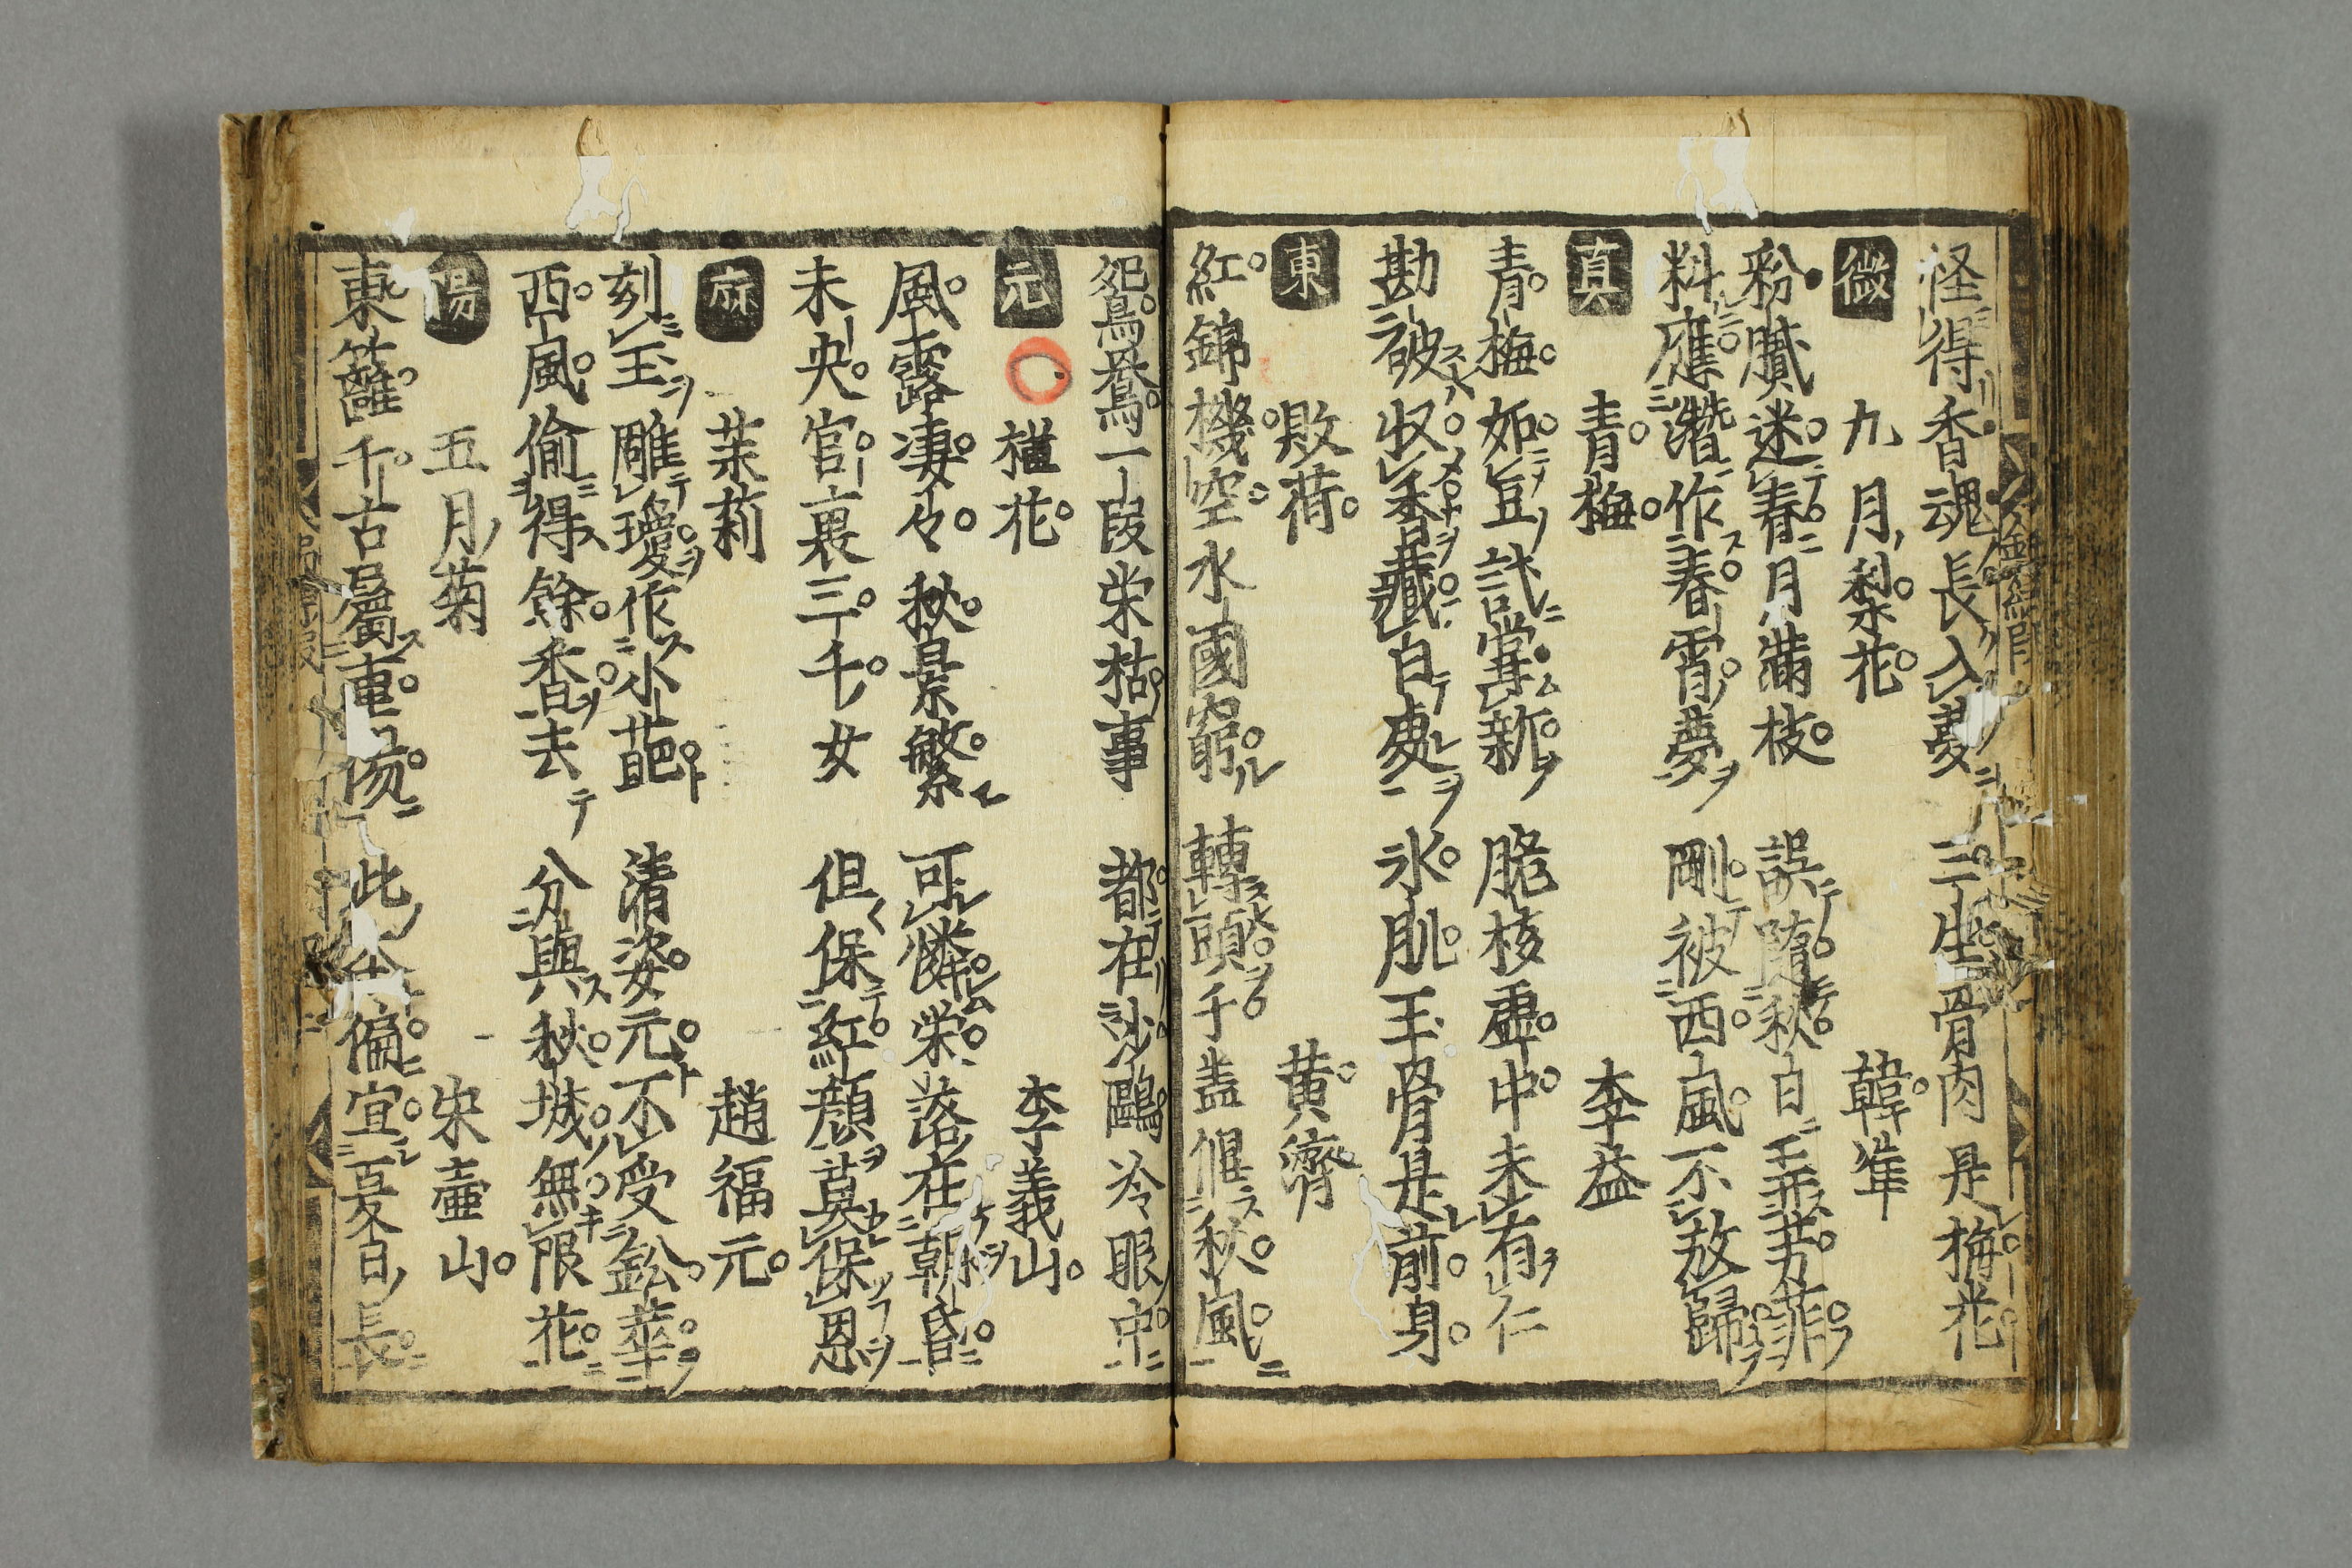 怪得香魂長入夢 三生骨肉是梅花
微 九月梨花 韓準
粉膩迷春月滿枝 誤隨秋白弄芳菲
料應潛作春宵夢 剛被西風不放歸
真 青梅 李益
青梅如豆試嘗新 脆核虚中未有仁
勘破収香藏白處 氷肌玉骨是前身
東 敗荷 黄濟
紅錦機空水國窮 轉頭千盖偃秋風
鴛鴦一段栄枯事 都在沙鷗冷眼中
元 槿花 李義山
風露凄々秋景繁 可憐栄落在朝昏
未央官裏三千女 但保紅顔莫保恩
麻 茉莉 趙福元
刻玉雕瓊作小葩 清姿元不受鉛華
西風偷得餘香去 分與秋城無限花
陽 五月菊 宋壷山
東籬千古屬重陽 此本偏宜夏日長